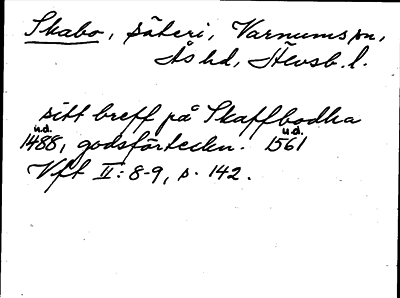 Skabo, säteri, Varnums sn,
Ås hd, Älvsb. l.
sitt breff på Skaffbodha
u.d. u.d.
1488, godsförteckn. 1561
Vft II: 8-9, s. 142.